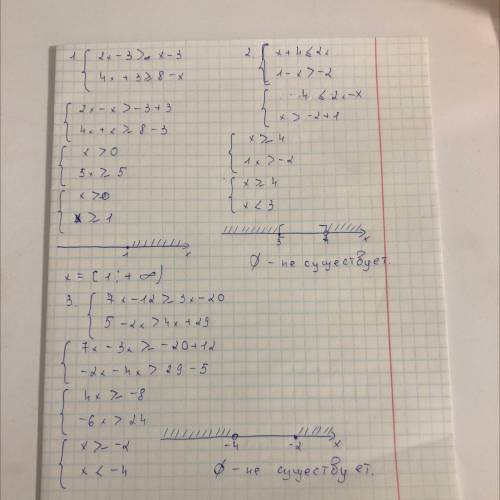 1. { 2x - 3 > x - 3
4x + 3 ≥ 8 - x
{ 2x - x > -3 + 3
4x + x ≥ 8 - 3
{ x > 0
5x ≥ 5
{ x > 0
x ≥ 1
1 x
x = [1; + ∞)
2. { x + 4 ≤ 2x
1 - x > -2
{ 4 ≤ 2x - x
x > -2 + 1
{ x ≥ 4
1x > -2
{ x ≥ 4
x < 3
3 4 x
∅ - не существует.
3. { 7x - 12 ≥ 3x - 20
5 - 2x > 4x + 29
{ 7x - 3x ≥ -20 + 12
-2x - 4x > 29 - 5
{ 4x ≥ -8
-6x > 24
{ x ≥ -2
x < -4
-4 -2 x
∅ - не существует.